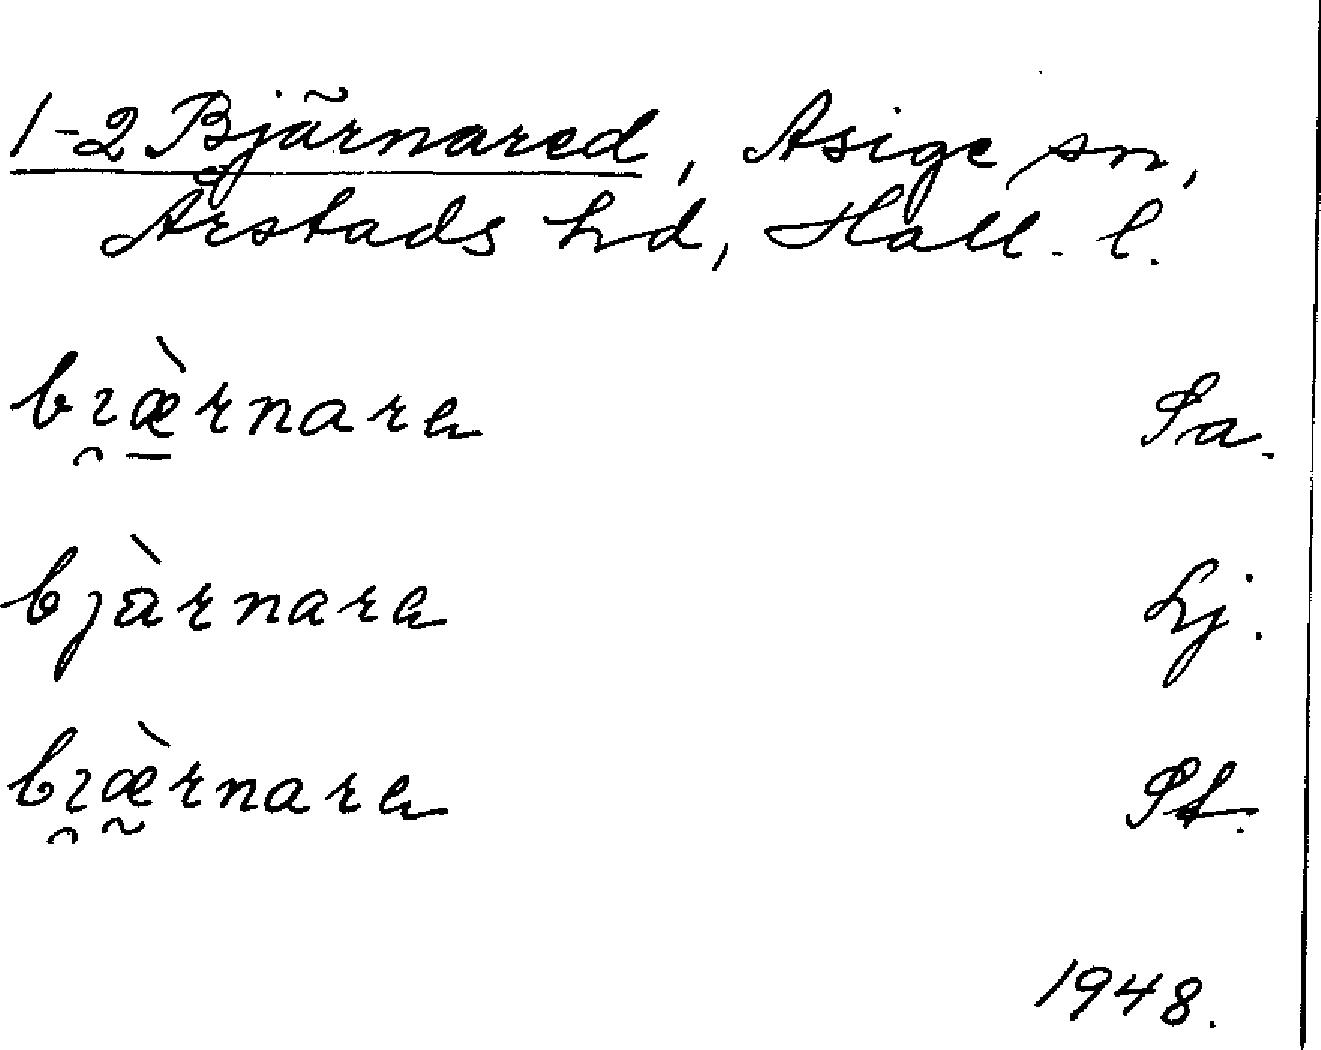 1-2 Bjärnared, Asige sn,
Årstads hd, Hall. l.
bı̯æ̱̀rnara Sa.
bjàrnara Lj.
bı̯æ̰̀rnara St.
1948.